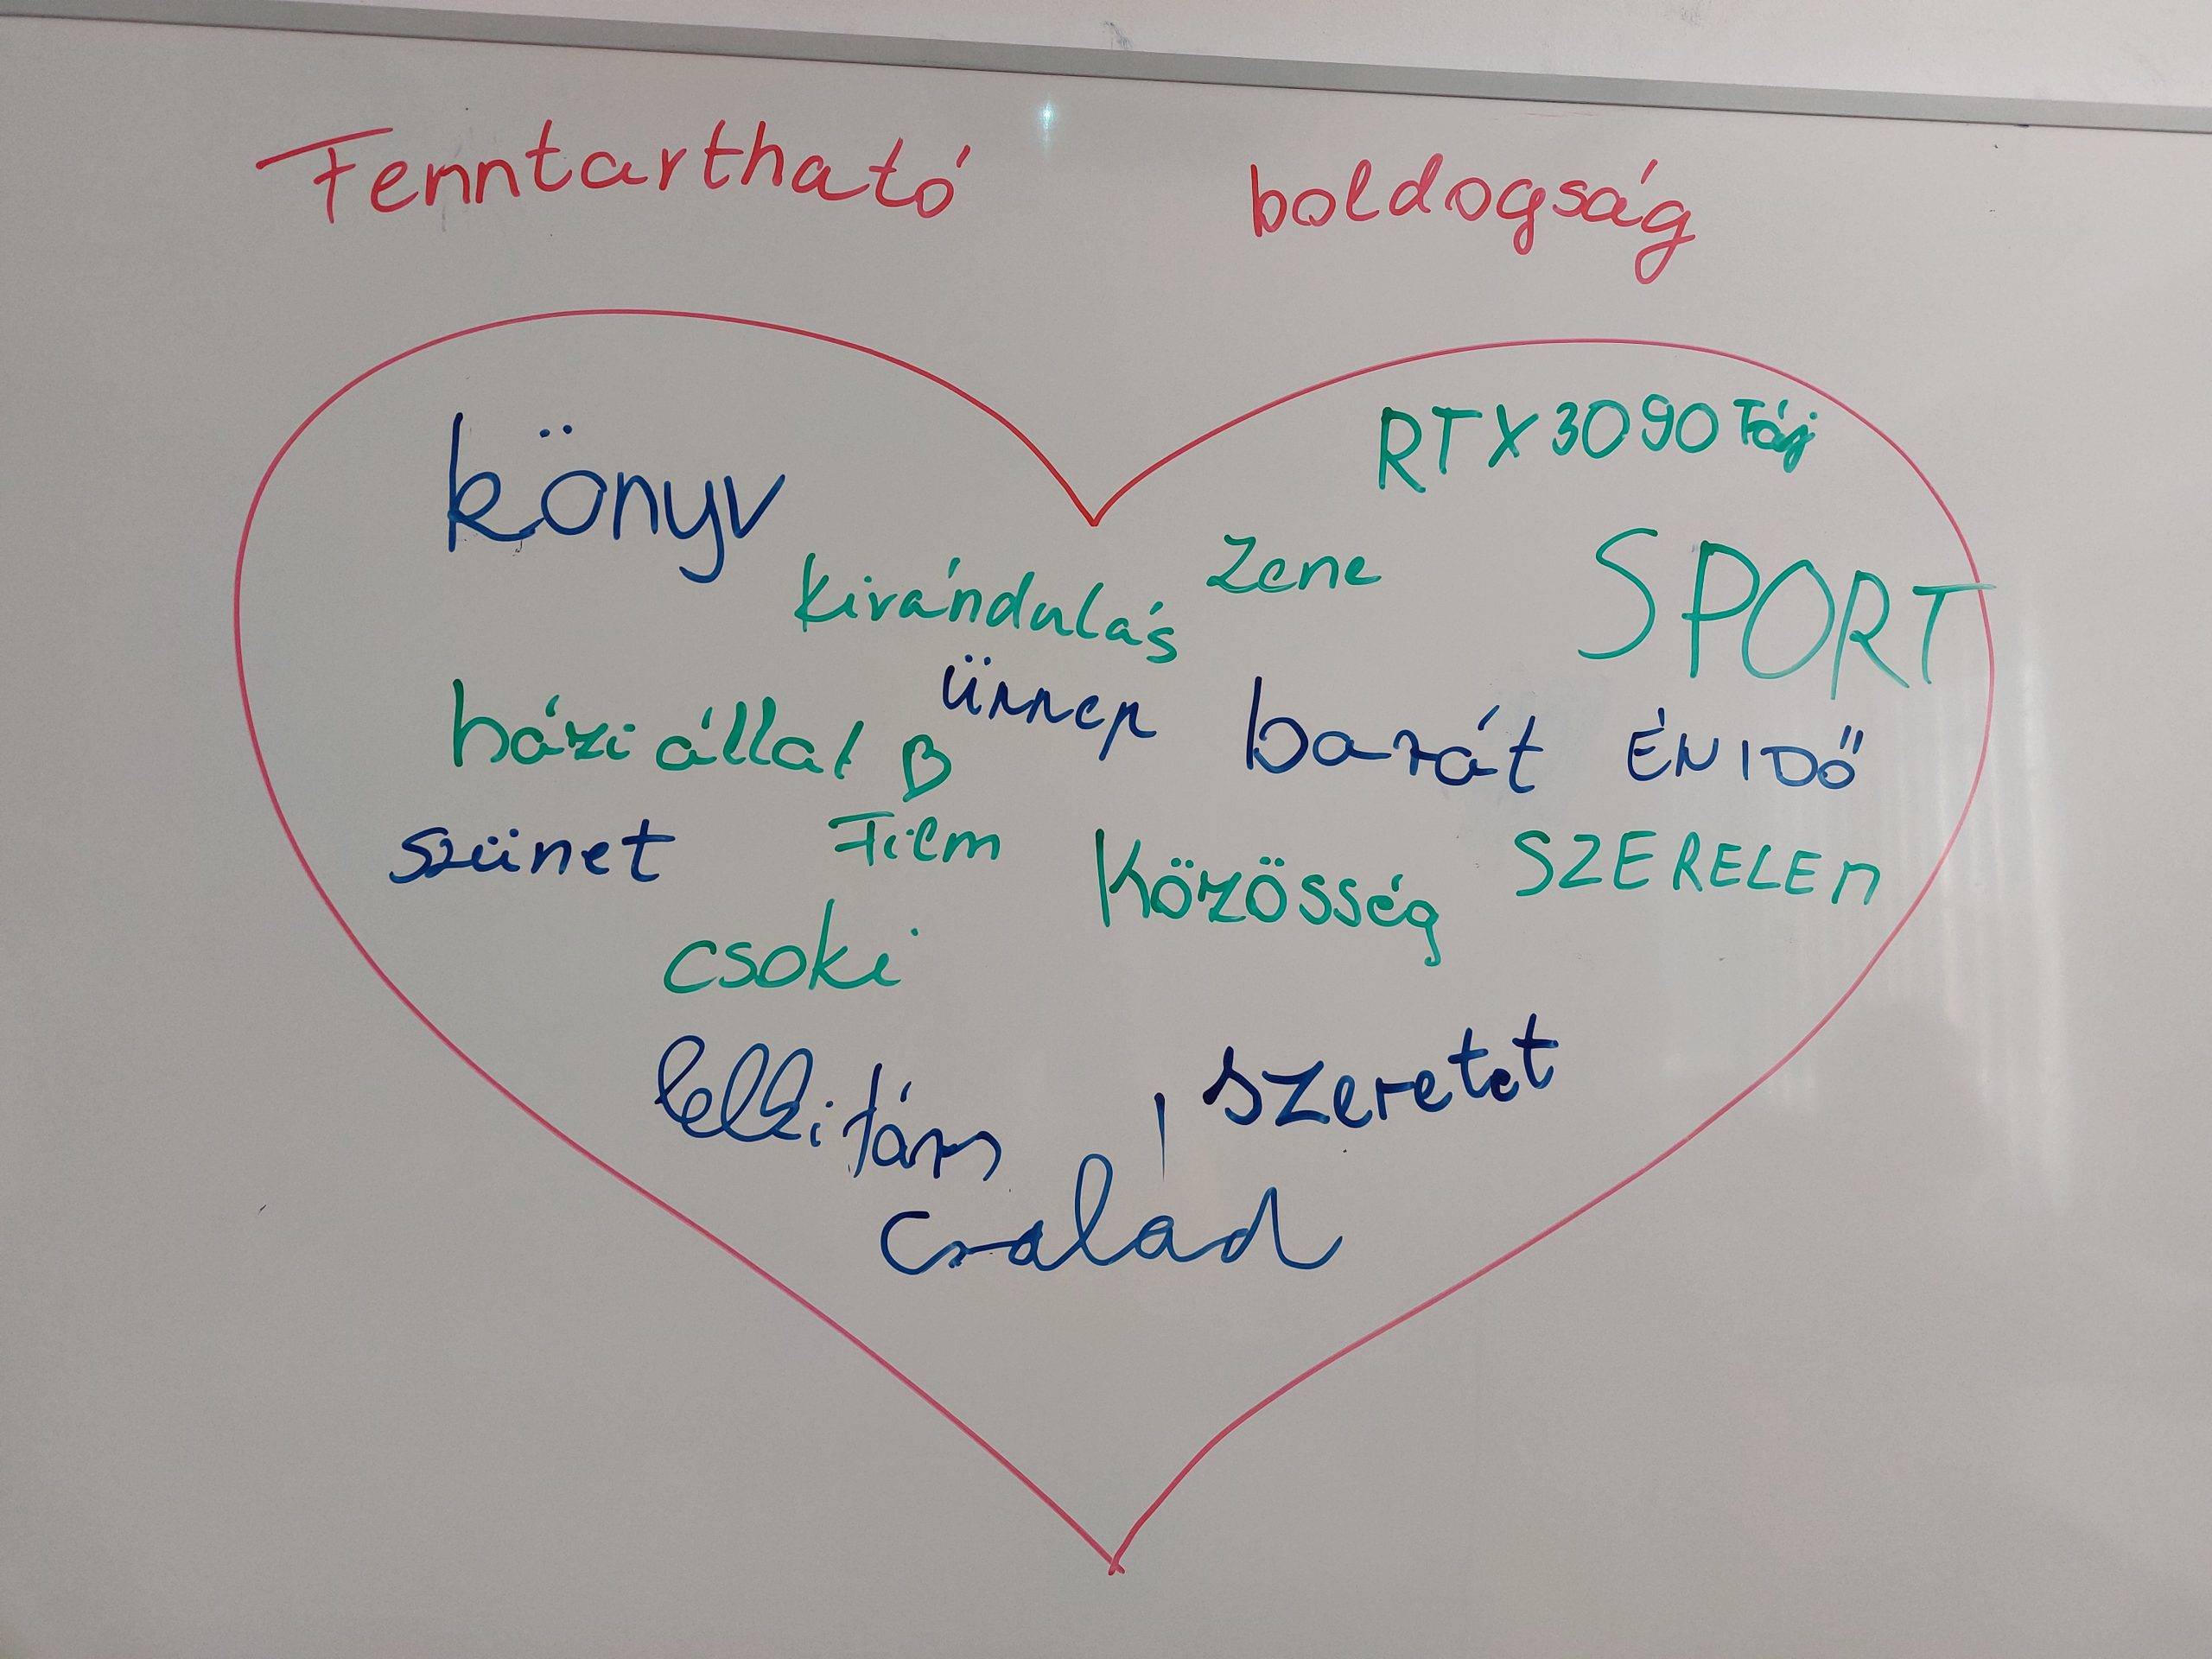 Fenntartható boldogság
könyv
RTX3090
kirándulás
Zene
SPORT
házi állat
ünnep
barát
ÉN IDŐ
szünet
Film
Közösség
SZERELEM
csoki
lelki társ
szeretet
család